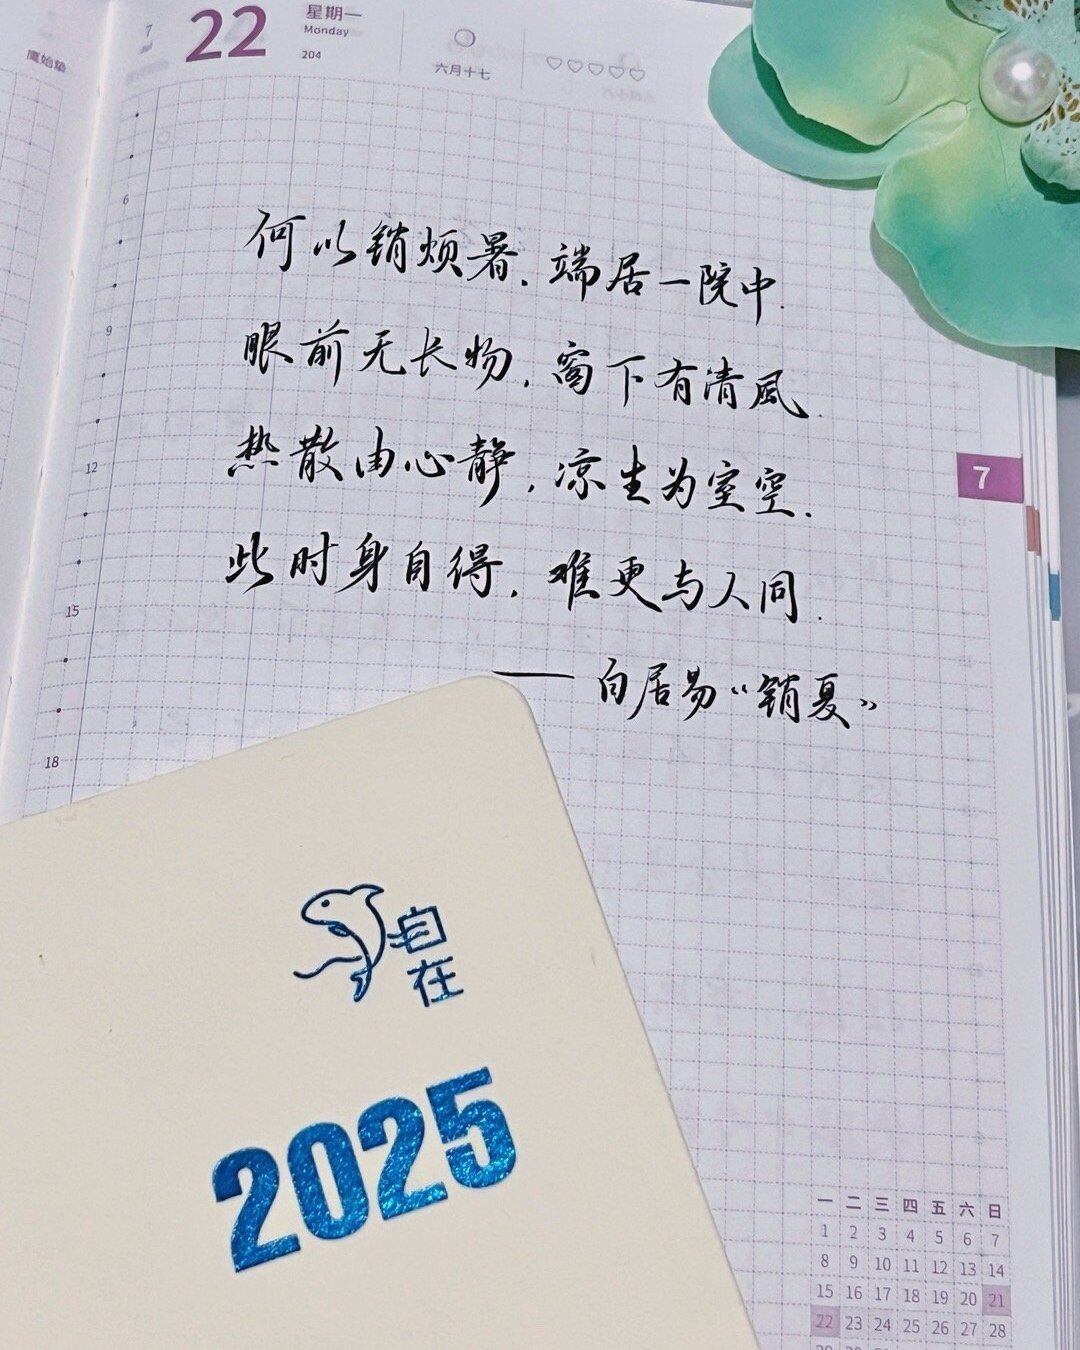 鹰始挚
7
22
星期一
Monday
204
六月十七
6
9
12
15
18
何以销烦暑,端居一院中.
眼前无长物,窗下有清風.
热散由心静,凉生为室空.
此时身自得,难更与人同.
——白居易“销夏”
7
自在
2025
一 二 三 四 五 六 日
1 2 3 4 5 6 7
8 9 10 11 12 13 14
15 16 17 18 19 20 21
22 23 24 25 26 27 28